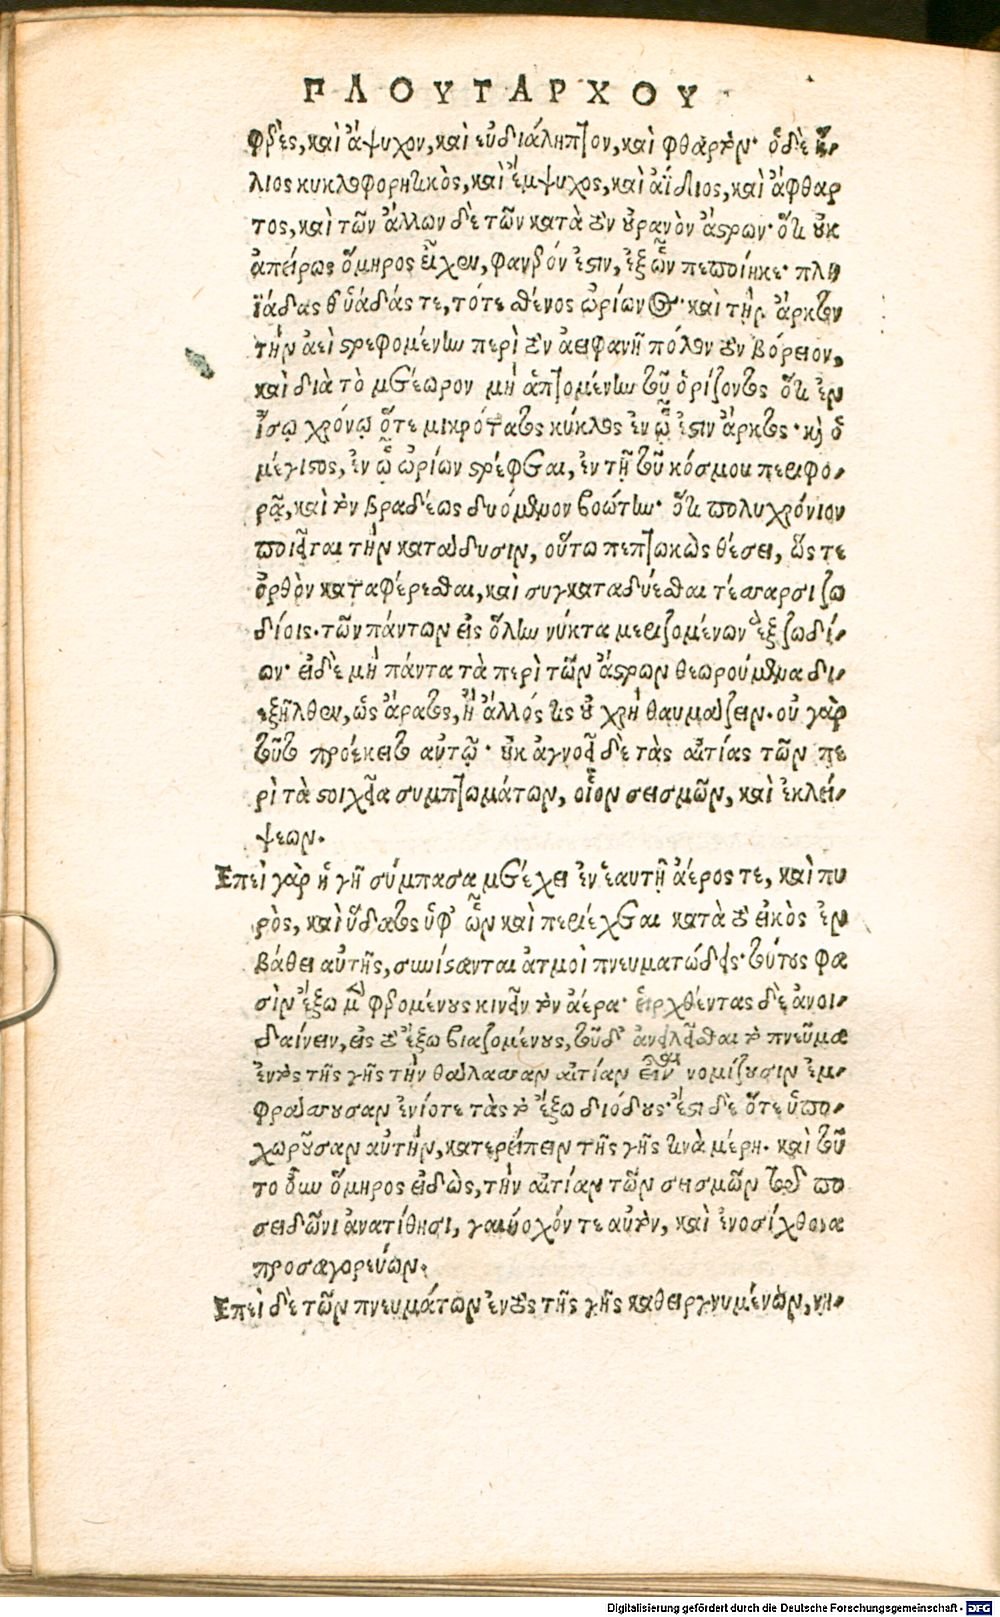 ΠΛΟΥΤΑΡΧΟΥ
φερὲς, καὶ ἄψυχον, καὶ εὐδιάληπτον, καὶ φθαρτόν· ὁ δὲ ἥ-
λιος κυκλοφορητικὸς, καὶ ἔμψυχος, καὶ ἀΐδιος, καὶ ἄφθαρ
τος, καὶ τῶν ἄλλων δὲ τῶν κατὰ τὸν οὐρανὸν ἄστρων· ὅτι οὐκ
ἀπείρως ὅμηρος εἶχεν, φανερόν ἐστιν, ἐξ ὧν πεποίηκε· πλη
ϊάδας θ' ὑάδάς τε, τότε σθένος ὠρίωνος· καὶ τὴν ἄρκτον
τὴν ἀεὶ στρεφομένην περὶ τὸν ἀειφανῆ πόλον τὸν βόρειον,
καὶ διὰ τὸ μετέωρον μὴ ἁπτομένην τοῦ ὁρίζοντος ὅτι ἐν
ἴσῳ χρόνῳ ὅτε μικρότατος κύκλος ἐν ᾧ ἐστιν ἄρκτος· καὶ ὁ
μέγιστος, ἐν ᾧ ὠρίων στρέφεται, ἐν τῇ τοῦ κόσμου περιφο-
ρᾷ, καὶ τὸν βραδέως δυόμενον βοώτην· ὅτι πολυχρόνιον
ποιεῖται τὴν κατάδυσιν, οὕτω πεπτωκὼς θέσει, ὥς τε
ὀρθὸν καταφέρεσθαι, καὶ συγκαταδύεσθαι τέσσαρσι ζω
δίοις· τῶν πάντων εἰς ὅλην νύκτα μεριζομένων ἓξ ζωδί-
ων· εἰ δὲ μὴ πάντα τὰ περὶ τῶν ἄστρων θεωρούμενα δι-
εξῆλθεν, ὡς ἄρατος, ἢ ἄλλός τις οὐ χρὴ θαυμάζειν. οὐ γὰρ
τοῦτο προέκειτο αὐτῷ· οὐκ ἀγνοεῖ δὲ τὰς αἰτίας τῶν πε
ρὶ τὰ στοιχεῖα συμπτωμάτων, οἷον σεισμῶν, καὶ ἐκλεί-
ψεων.
Ἐπεὶ γὰρ ἡ γῆ σύμπασα μετέχει ἐν ἑαυτῇ ἀέρος τε, καὶ πυ
ρὸς, καὶ ὕδατος ὑφ' ὧν καὶ περιέχεται κατὰ τὸ εἰκὸς ἐν
βάθει αὐτῆς, συνίστανται ἀτμοὶ πνευματώδεις· τούτους φα
σὶν ἔξω μὲν φερομένους κινεῖν τὸν ἀέρα· εἱρχθέντας δὲ ἀνοι-
δαίνειν, εἰς τὸ ἔξω βιαζομένους, τοῦ δ' ἀνειλεῖσθαι τὸ πνεῦμα
ἐντὸς τῆς γῆς τὴν θάλασσαν αἰτίαν εἶναι νομίζουσιν ἐμ-
φράσσουσαν ἐνίοτε τὰς τὸ ἔξω διόδους· ἔστι δὲ ὅτε ὑπο-
χωροῦσαν αὐτὴν, κατερείπειν τῆς γῆς τινὰ μέρη. καὶ τοῦ
το οὖν ὅμηρος εἰδὼς, τὴν αἰτίαν τῶν σεισμῶν τῷ πο
σειδῶνι ἀνατίθησι, γαιήοχόν τε αὐτὸν, καὶ ἐνοσίχθονα
προσαγορεύων.
Ἐπεὶ δὲ τῶν πνευμάτων ἐντὸς τῆς γῆς καθειργνυμένων, νη-
Digitalisierung gefördert durch die Deutsche Forschungsgemeinschaft - DFG